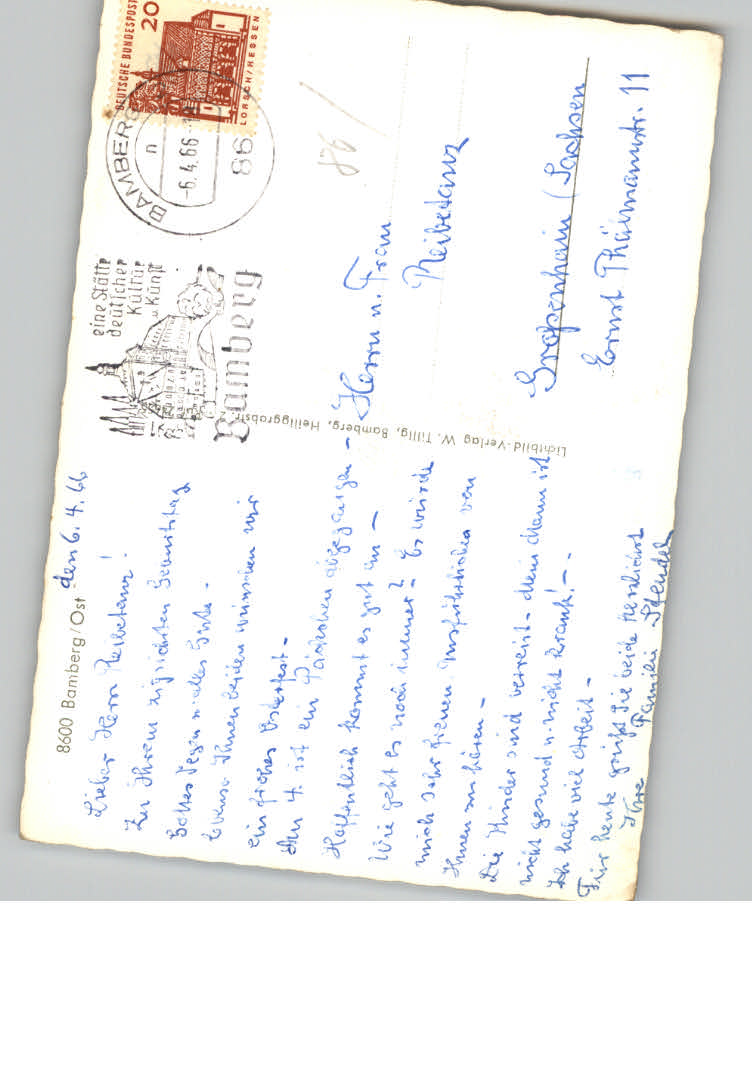 8600 Bamberg/Ost den 6.4.66
Lieber Herr Reibetanz!
Zu Ihrem Geburtstag
Gottes Segen u. alles Gute.
Ebenso Ihnen beiden wünschen wir
ein frohes Osterfest.
Am 4. ist ein Päckchen abgegangen -
Hoffentlich kommt es gut an -
Wie geht es noch immer? - Es würde
mich sehr freuen Ausführliches von
Ihnen zu hören -
Die Kinder sind verreist - Mein Mann ist
nicht gesund u. nicht krank! -.
Ich habe viel Arbeit -
Für heute grüßt Sie beide herzlichst
Ihre Familie
Lichtbild-Verlag W. Tillig, Bamberg, Heiliggrabstr.
eine Stätte
deutscher
Kultur
u. Kunst
Bamberg
BAMBERG
n
-6.4.66-
86
BAMBERG
DEUTSCHE BUNDESPOST
20
LORSCH/HESSEN
86
Herrn u. Frau
Reibetanz
Großenhain (Sachsen
Ernst Thälmannstr. 11